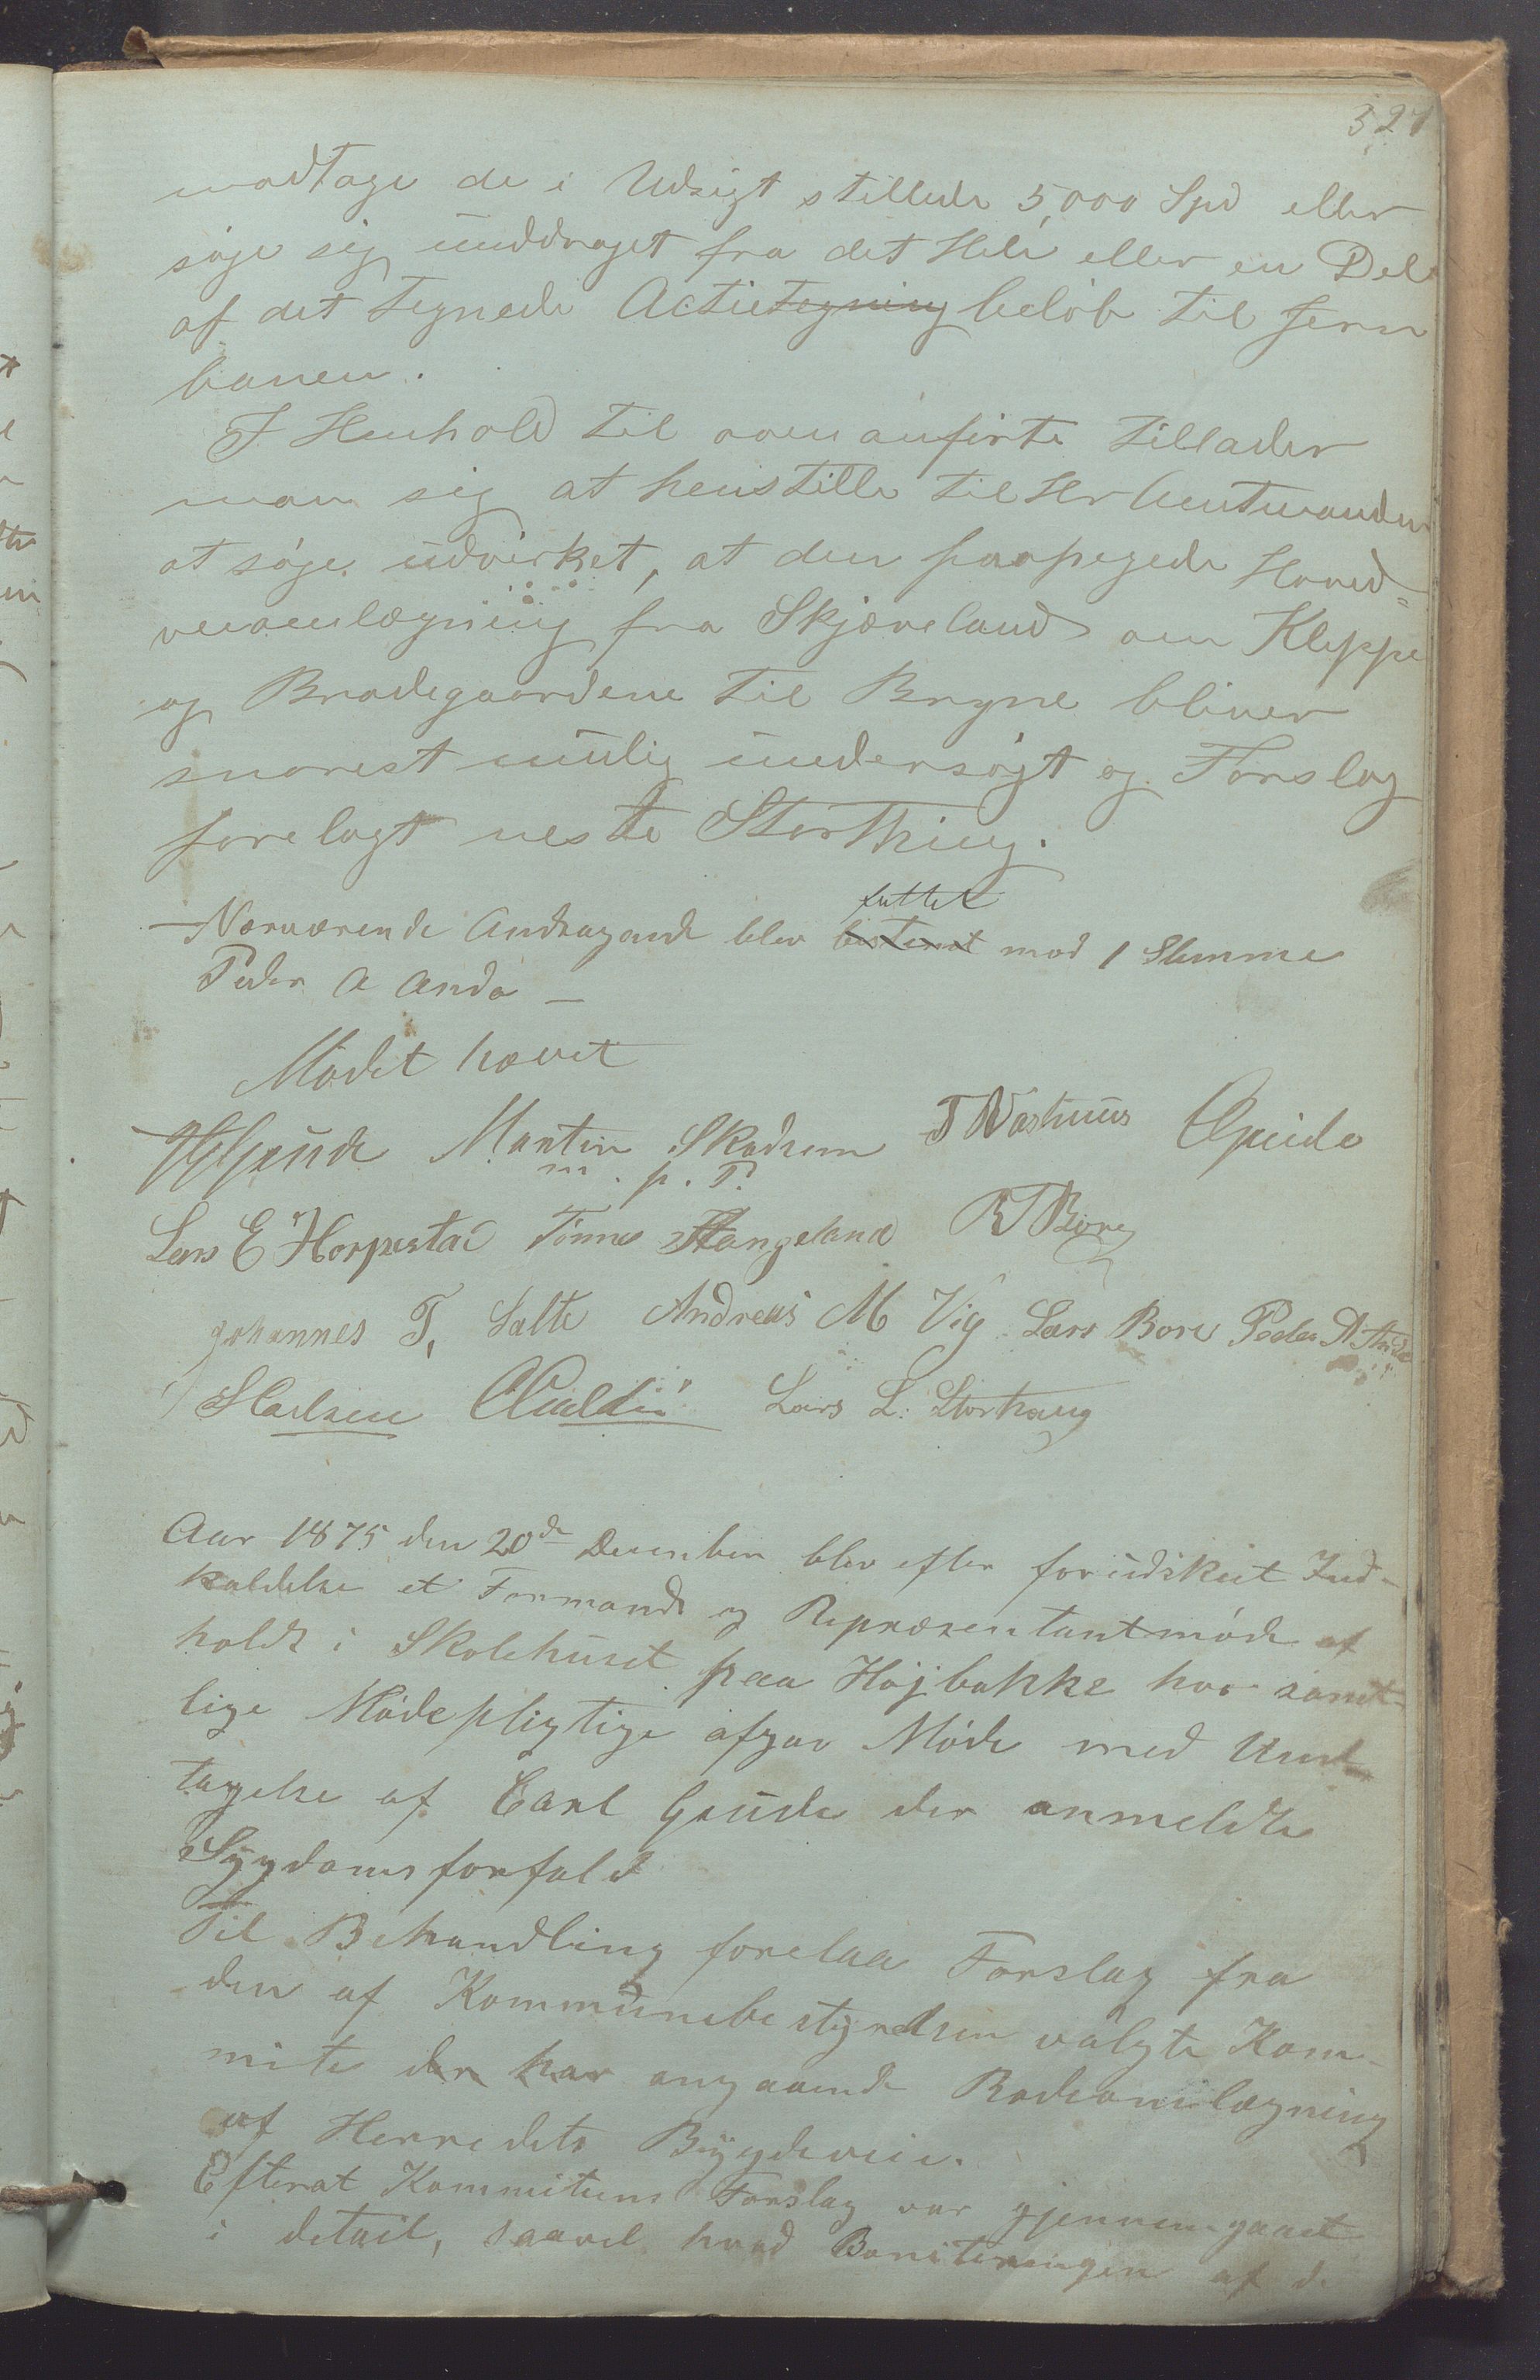 327
modtage de i Udsigt stillede 5,000 Spd eller
søge sig unddraget fra det Hele eller en Del
af det tegnede Actietegning beløb til Jern
banen.
I Henhold til ovenanførte tillader
man sig at henstille til Hr Amtmanden
at søge udvirket, at den paapegede Hoved=
veiomlægning fra Skjæveland over Kleppe
og Braudegaardene til Bryne bliver
snarest mulig undersøgt og Forslag
forelagt neste Storthing.
fattet
– Nærværende Andragende blev bestemt mod 1 Stemme
Peder A Anda –
Mødet hævet
Martin Skadsem T Vasshuus
m. p. P.
Lars E Horpestad Tønnes Stangeland R T Bore
Johannes T. Salte Andreas M Vig Lars Bore Peder A. Anda
Lars L. Storhaug
Aar 1875 den 20de December blev efter forudskeet Ind-
kaldelse et Formands og Repræsentantmøde af
holdt i Skolehuset paa Højbakke hvor samt=
lige Mødepligtige afgav Møde med Und
tagelse af Carl Gaude der anmeldte
Sygdomsforfald
Til Behandling forelaa Forslag fra
den af Kommunebestyrelsen valgte Kom-
mite der har angaaende Rodeomlægning
af Herredets Bygdeveie.
Efterat Kommiteens Forslag var gjennemgaaet
i detail, saavel hvad Boniteringen af d.